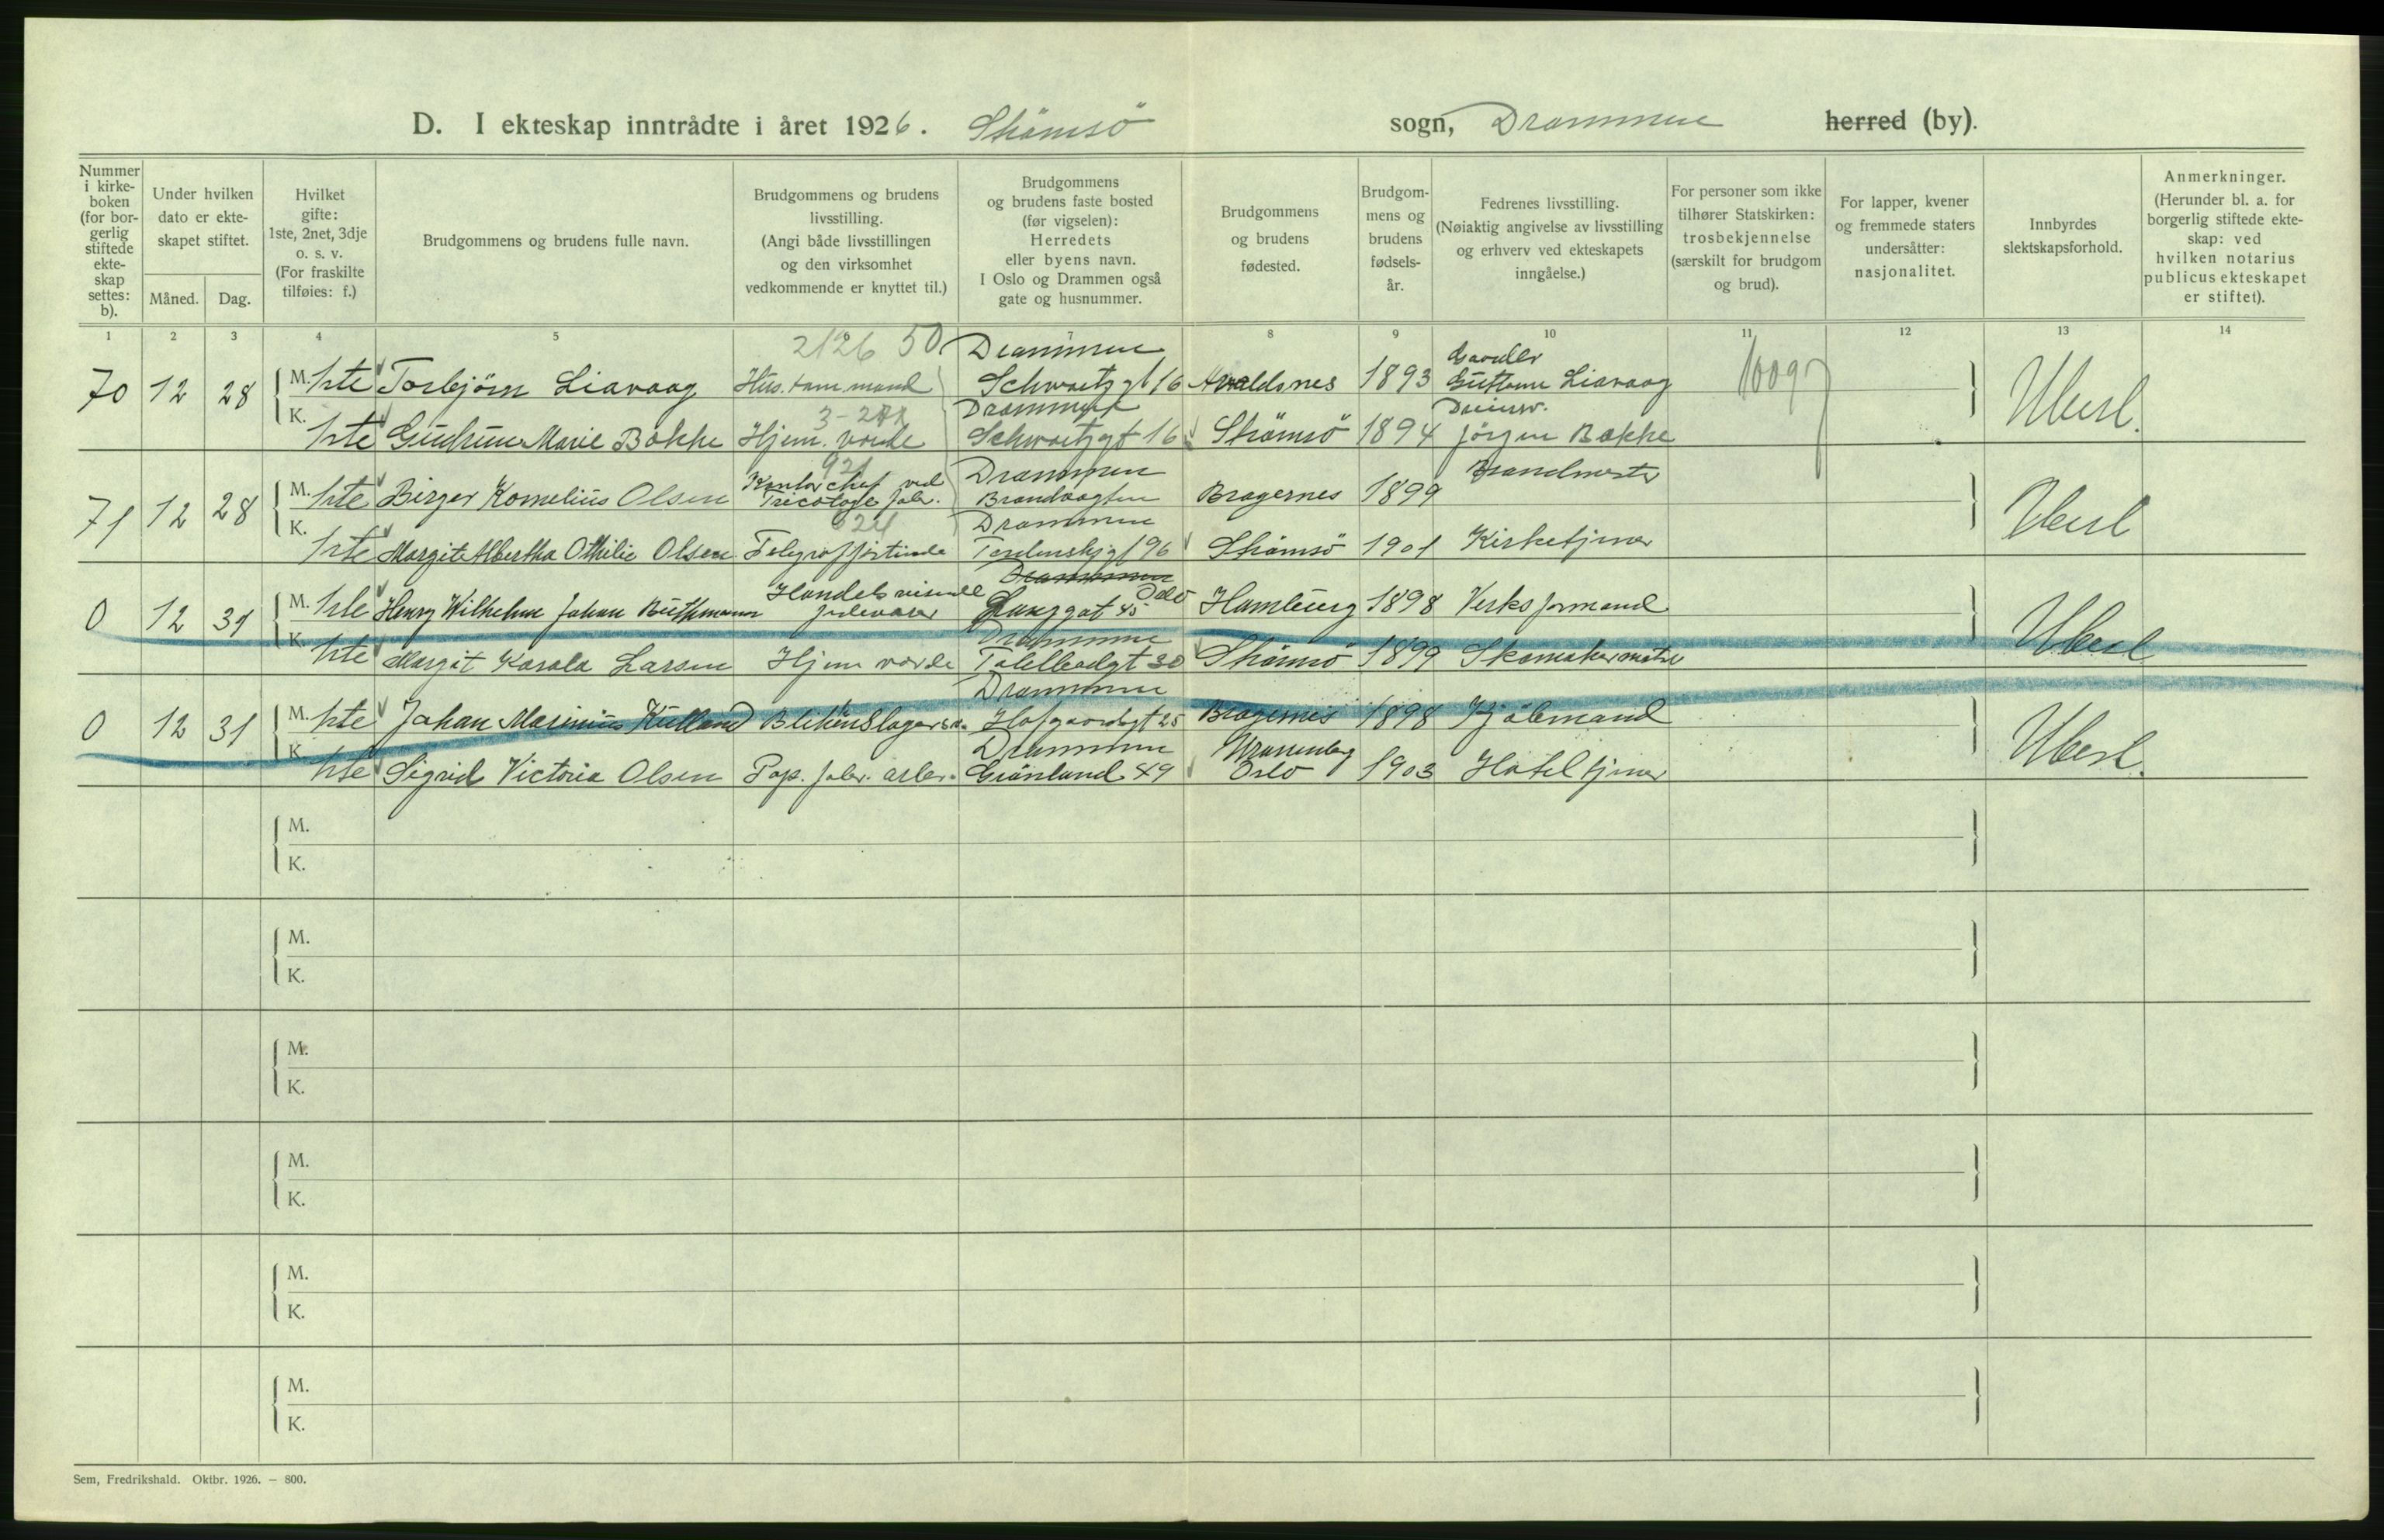 D. I ekteskap inntrådte i året 1926. Strömsö sogn, Drammen herred (by).
Nummer i kirke- boken (for bor- gerlig stiftede ekte- skap settes: b).
Under hvilken dato er ekte- skapet stiftet.
Måned. Dag.
Hvilket gifte: 1ste, 2net, 3dje o. s. v. (For fraskilte tilføies: f.)
Brudgommens og brudens fulle navn.
Brudgommens og brudens livsstilling. (Angi både livsstillingen og den virksomhet vedkommende er knyttet til.)
Brudgommens og brudens faste bosted (før vigselen): Herredets eller byens navn. I Oslo og Drammen også gate og husnummer.
Brudgommens og brudens fødested.
Brudgom- mens og brudens fødsels- år.
Fedrenes livsstilling. (Nøiaktig angivelse av livsstilling og erhverv ved ekteskapets inngåelse.)
For personer som ikke tilhører Statskirken: trosbekjennelse (særskilt for brudgom og brud).
For lapper, kvener og fremmede staters undersåtter: nasjonalitet.
Innbyrdes slektskapsforhold.
Anmerkninger. (Herunder bl. a. for borgerlig stiftede ekte- skap: ved hvilken notarius publicus ekteskapet er stiftet).
1 2 3 4 5 7 8 9 10 11 12 13 14
2126 50 Drammen
70 12 28 M. 1ste Torbjörn Liavaag Schwartzgt 16 Avaldsnes 1893 Gaardbr Liavaag Ubesl.
3-2 Drammen
K. 1ste Gudrun Marie Bakke Hjem. værde Schwartzgt 16 Strömsö 1894 Jörgen Bakke
921 Drammen Brandmester
71 12 28 M. 1ste Birger Kornelius Olsen Kontorchef ved Tricotage fabr. Brandvagten Bragernes 1899 Ubesl
624 Drammen
K. 1ste Margit Albertha Othilie Olsen Telegrafistinde Tordenskjgt 96 Strömsö 1901 Kirketjener
Drammen
0 12 31 M. 1ste Henry Wilhelm Johan Buthmann Handelsreisende Oslo Langgat 45 Hamburg 1898 Verksformand Ubesl
Drammen
K. 1ste Margit Karola Larsen Hjem værde Tollbodgt 30 Strömsö 1899 Skomakermster
Drammen
0 12 31 M. 1ste Johan Marinius Rutland Blikenslagersv. Hofgaardsgt 25 Bragernes 1898 Kjölmand Ubesl.
Drammen
K. 1ste Sigrid Victoria Olsen Pap. fabr. arb. Grönland 49 Oslo 1903 Hotel tjener
M.
K.
M.
K.
M.
K.
M.
K.
M.
K.
M.
K.
Sem, Fredrikshald. Oktbr. 1926. — 800.